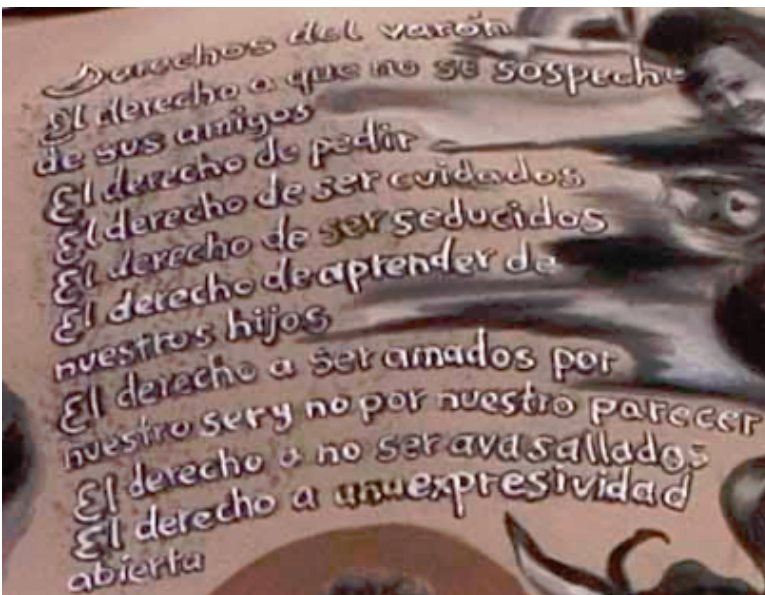 Derechos del varón
El derecho a que no se sospeche
de sus amigos
El derecho de pedir
El derecho de ser cuidados
El derecho de ser seducidos
El derecho de aprender de
nuestros hijos
El derecho a ser amados por
nuestro ser y no por nuestro parecer
El derecho a no ser avasallados
El derecho a una expresividad
abierta